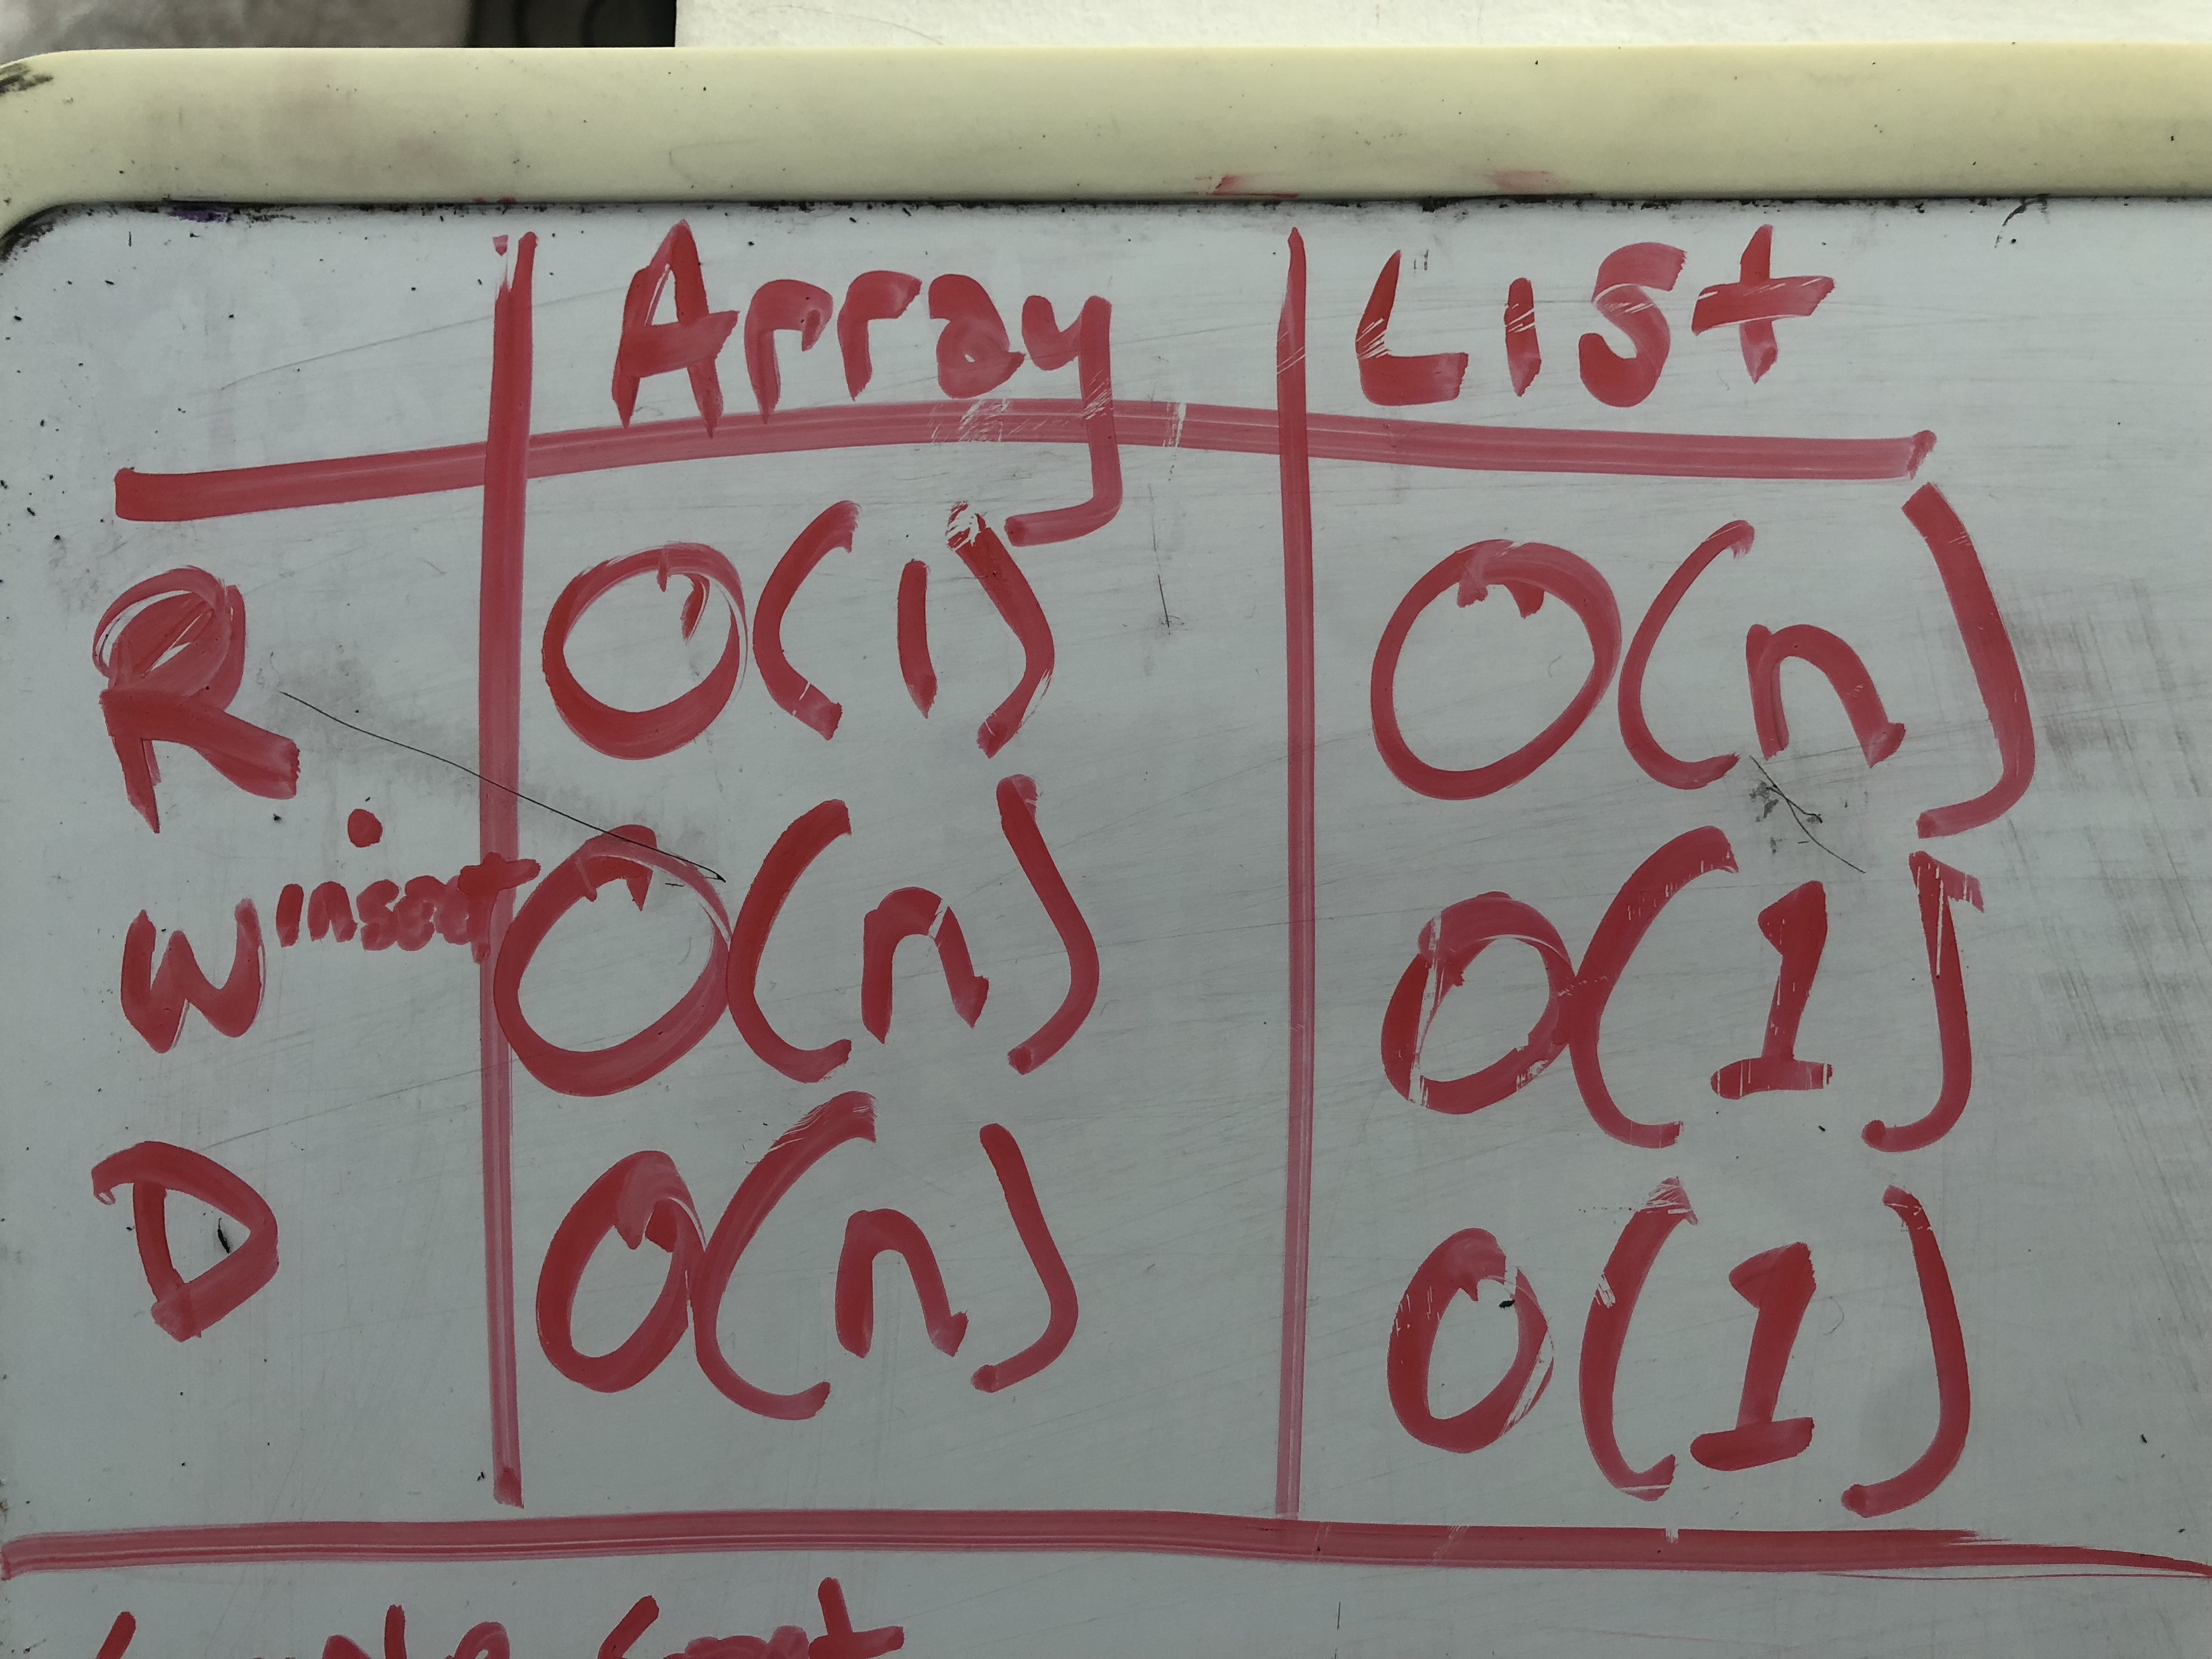 Array List
R O(1) O(n)
W insert O(n) O(1)
D O(n) O(1)